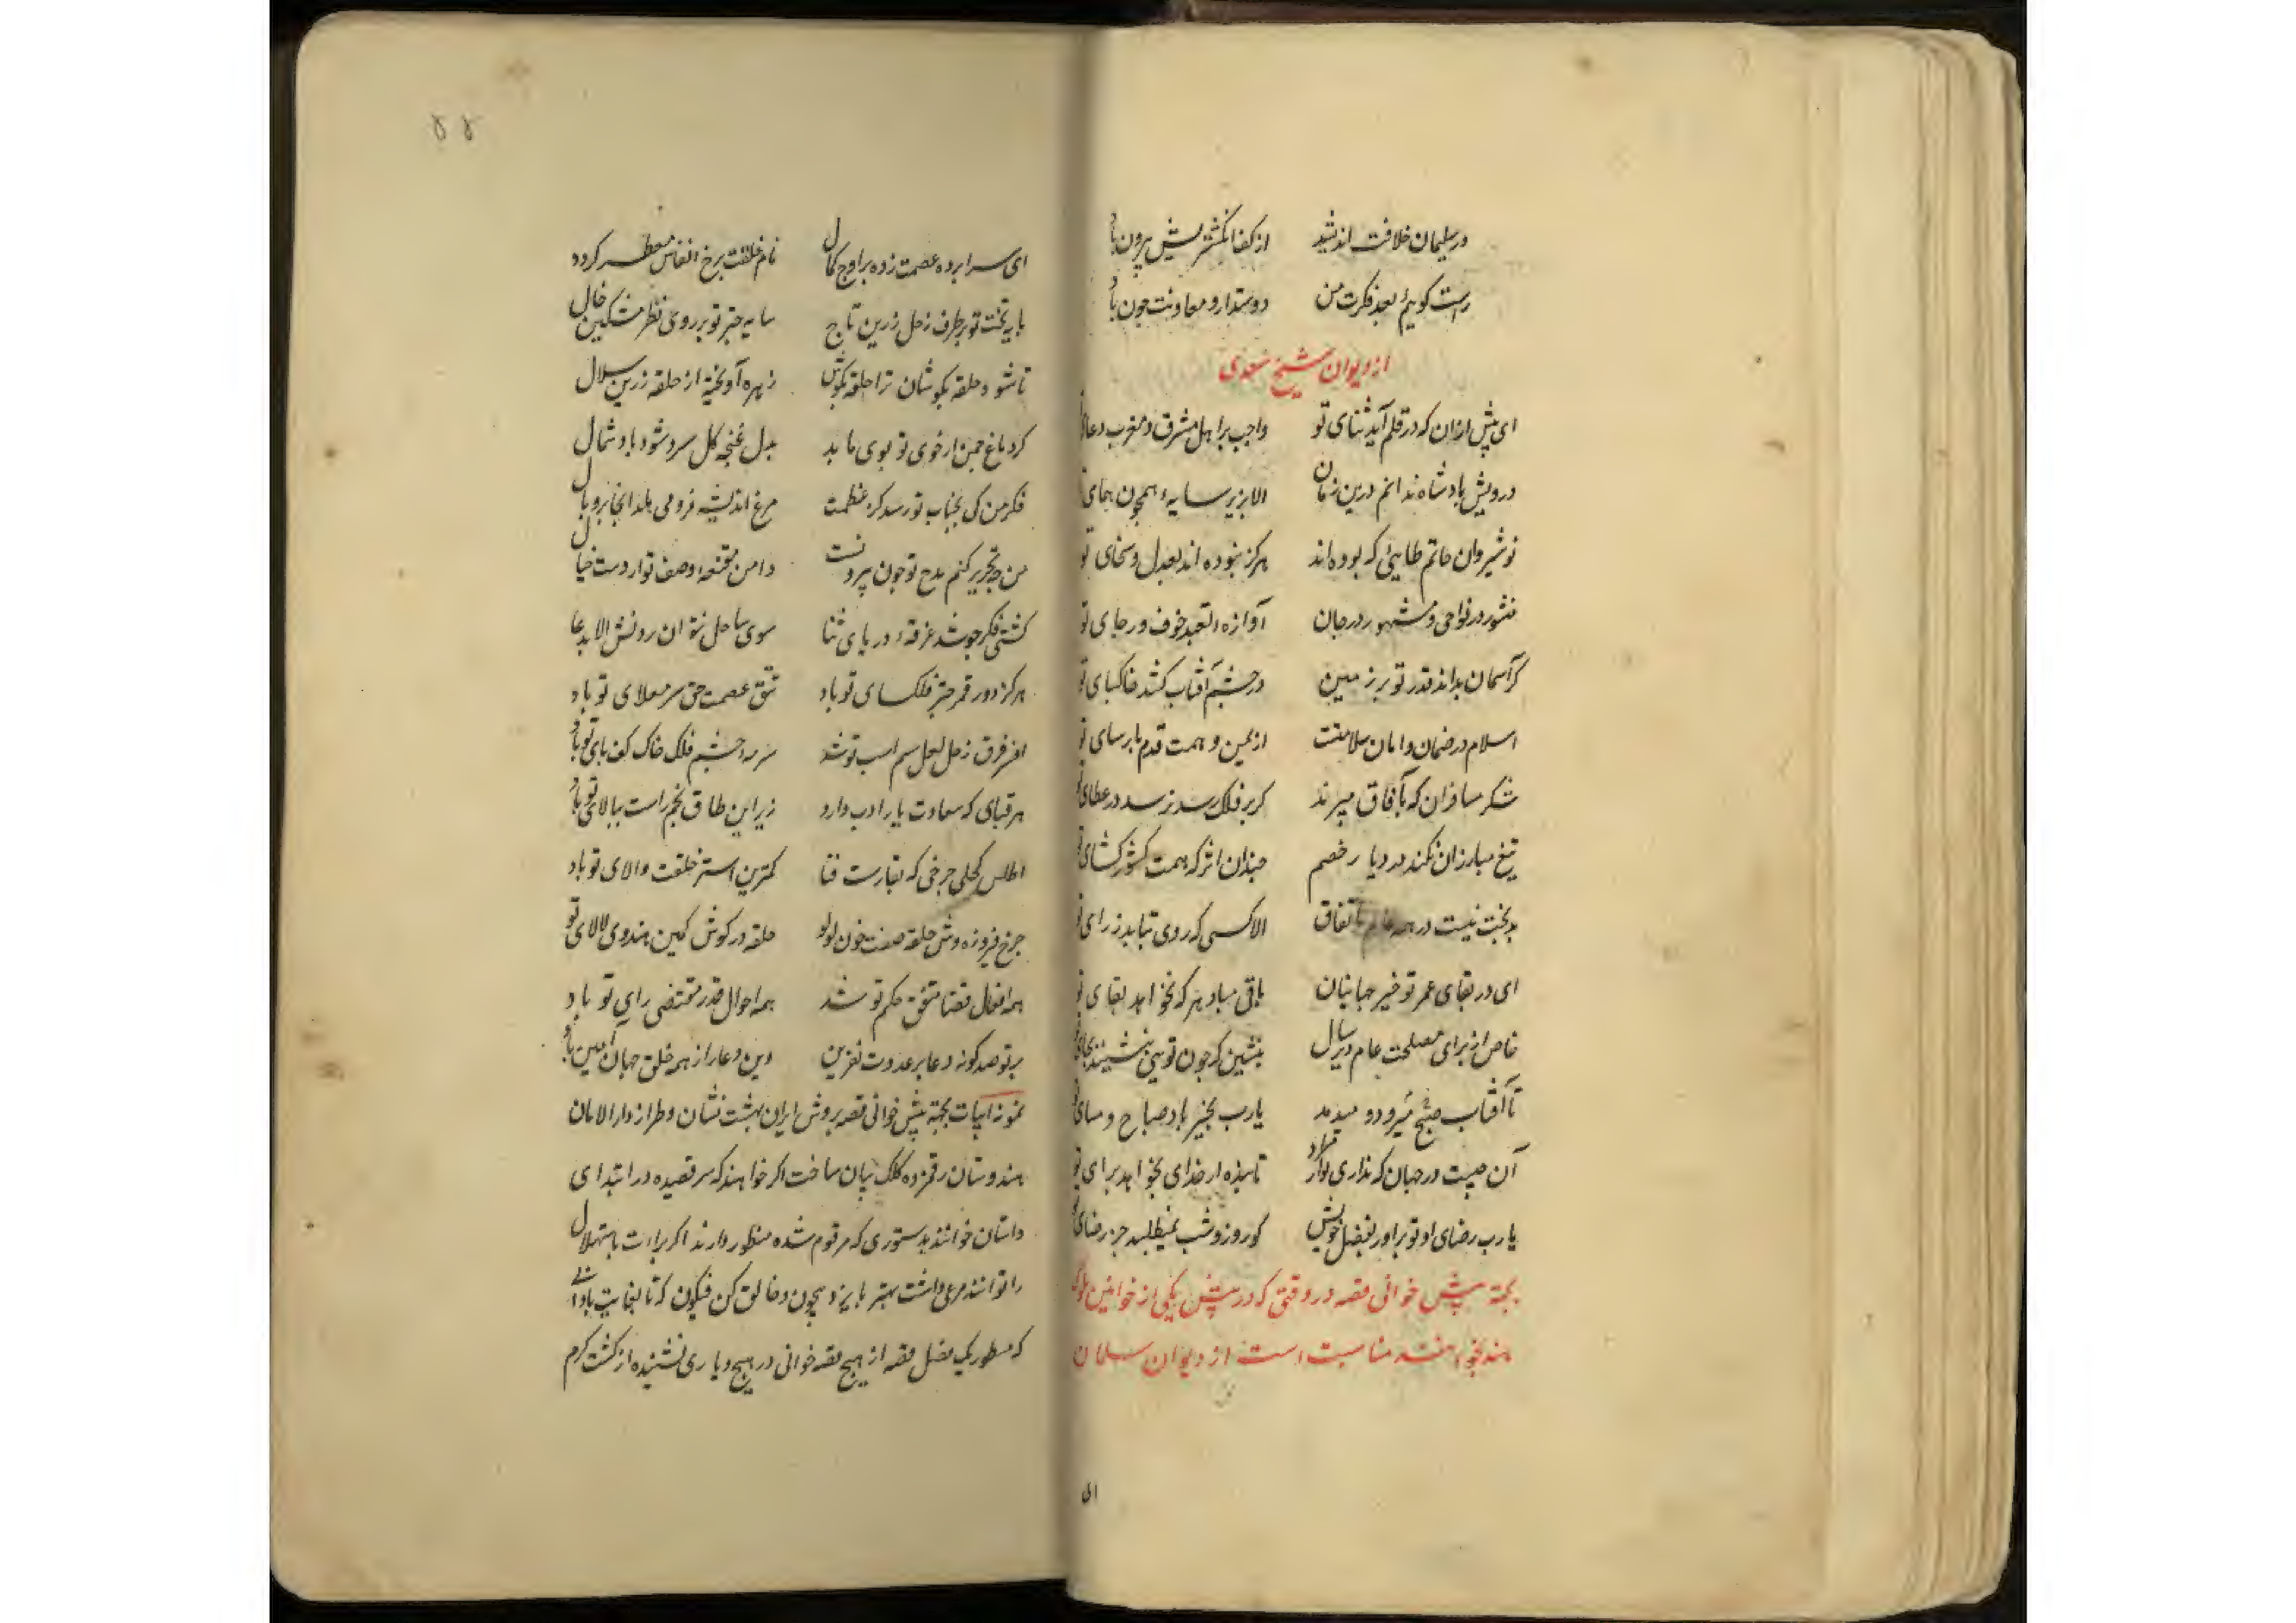 ور سلیمان خلافت اندیشد از کف انگشتریش بیرون باد
راست گویم بعد فکرت من دوستدار و معاونت چون باد
از دیوان شیخ سعدی
ای پیش ازان که در قلم آید ثنای تو واجب بر اهل مشرق و مغرب دعای
درویش و پادشاه ندانم درین زمان الا بزیر سایه همچون همای
نوشیروان حاتم طایی که بوده اند هرگز نبوده اند بعدل و سخای تو
منشور در نواحی و مشهور در جهان آوازه تعبد خوف و رجای تو
گر آسمان بداند قدر تو بر زمین در چشم آفتاب کشد خاکپای تو
اسلام در ضمان و امان سلامتست از یمن و همت قدم پارسای تو
شکر مسافران که بآفاق میبرند گر بر فلک رسد نرسد در عطای
تیغ مبارزان نکند در دیار خصم چندان اثر که همت کشورگشای
بدبخت نیست در همه عالم باتفاق الا کسی که روی بتابد ز رای
ای در بقای عمر تو خیر جهانیان باقی مباد هر که نخواهد بقای تو
خاص از برای مصلحت عام دیرسال بنشین که چون تویی ننشیند بجای
تا آفتاب صبح میرود و میدمد یارب بخیر باد صباح و مسای
آن چیست در جهان که نداری تو آن مراد تا بنده از خدای بخواهد برای تو
یارب رضای او تو برآور بفضل خویش کو روز و شب نمیطلبد جز رضای
بجهة پیش خوانی قصه در وقتی که در پیش یکی از خوانین
هند بخوانند مناسبت است از دیوان سلمان
ای
۵۵
ای سراپرده عصمت زده بر اوج کمال نام خلقت برخ انفاس معطر کرده
پایه تخت تو بر طرف زحل زرین تاج سایه چتر تو بر روی ظفر مشکین خال
تا شود حلقه بگوشان ترا حلقه بگوش زهره آویخته از حلقه زرین سلال
گرد باغ چمن از خوی تو بوی یابد بدل غنچه گل سرد شود باد شمال
فکر من کی بجناب تو رسد کز عظمت مرغ اندیشه فرو می هلد آنجا پر و بال
من چه تحریر کنم مدح تو چون بیرونست دامن مقنعه وصف تو از دست خیال
کشتی فکر چو شد غرقه دریای ثنا سوی ساحل نتوان روشش الا بدعا
مرکز دور قمر چتر فلکسای تو باد تتق عصمت حق سر معلای تو باد
افسر فرق زحل لعل سم اسب تو شد سرمه چشم فلک خاک کف پای تو باد
هر قبای که سعادت یا را ادب دارد زیر این طاق نهم راست ببالای تو باد
اطلس کحلی چرخی که بقارست فنا کمترین استر خلقت والای تو باد
چرخ فیروزه وش حلقه صفت چون لولو حلقه در گوش کمین هندوی لالای تو
همه افعال قضا متفق حکم تو شد همه احوال قدر مقتضی رای تو باد
بر تو صد گونه دعا بر عدوت نفرین وین دعا را از همه خلق جهان آمین باد
نمونه ابیات بجهة پیش خوانی قصه بروش ایران بهشت نشان و طراز دار الامان
هندوستان رقمزده کلک بیان ساخت اگر خواهند که سر قصیده در ابتدای
داستان خوانند بدستوری که مرقوم شده منظور دارند اگر براعت باستهلال
را توانند مرعی داشت بهتر بایزد بیچون و خالق کن فیکون که تا بغایت
که مسطور یک فصل قصه از هیچ قصه خوانی در هیچ دیاری نشنیده از کشت کرم